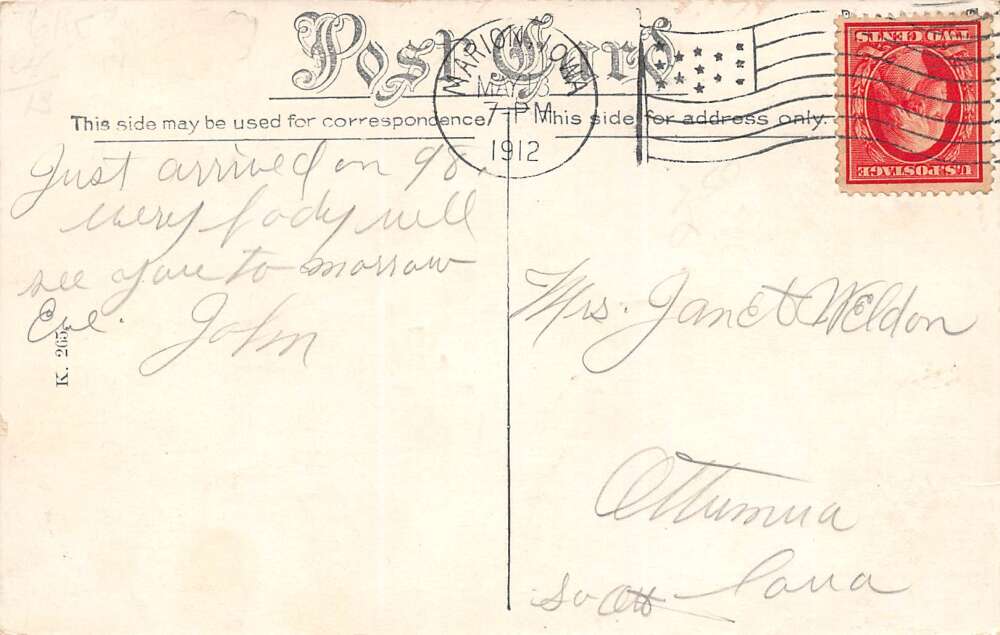 Post Card
MARION, IOWA
MAY
7-PM
1912
TWO CENTS
U.S. POSTAGE
This side may be used for correspondence
This side for address only.
Just arrived on 98,
every body well
see you to morrow
Eve. John
K. 265
Mrs. Janet Weldon
Ottumwa
Iowa
So Ott